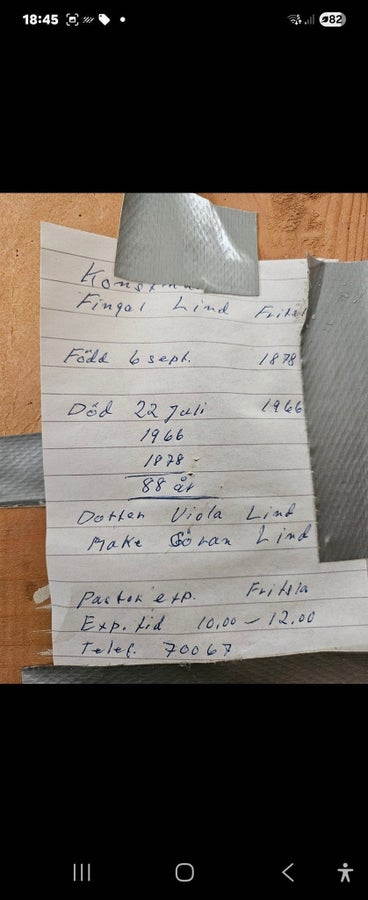 18:45
82
Konstnä
Fingal Lind Fritsl
Född 6 sept. 1878
Död 22 Juli 1966
1966
1878
88 år
Dotter Viola Lind
Make Göran Lind
Pastor exp. Fritsla
Exp. tid 10.00 – 12.00
Telef. 70067